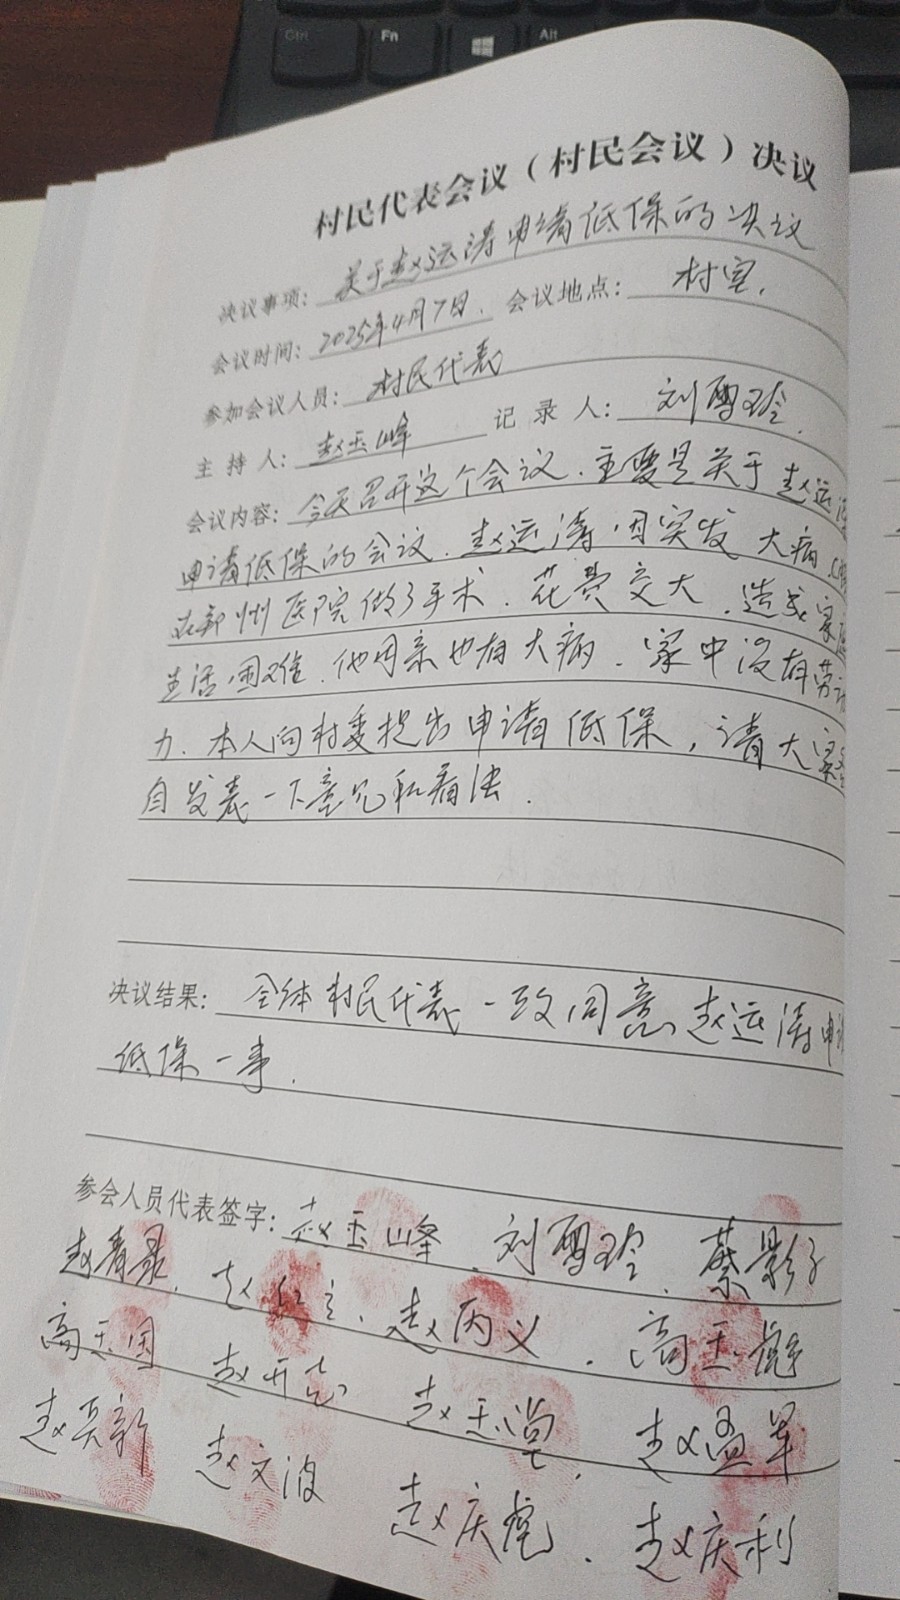 Ctrl Fn Alt
村民代表会议（村民会议）决议
决议事项：关于赵运涛申请低保的决议
会议时间：2025年4月7日. 会议地点：村室.
参加会议人员：村民代表
主持人：赵玉峰 记录人：刘雪玲.
会议内容：今天召开这个会议.主要是关于赵运涛
申请低保的会议.赵运涛因突发大病.
在郑州医院做了手术.花费交大.造成家庭
生活困难.他母亲也有大病.家中没有劳动
力.本人向村委提出申请低保，请大家各
自发表一下意见和看法.
决议结果：全体村民代表一致同意赵运涛申请
低保一事.
参会人员代表签字：赵玉峰.刘雪玲.蔡影子
赵青录.赵红立.赵丙义.高玉彪
高玉国 赵开志 赵玉堂.赵孟军
赵英新 赵文波 赵庆宪.赵庆利